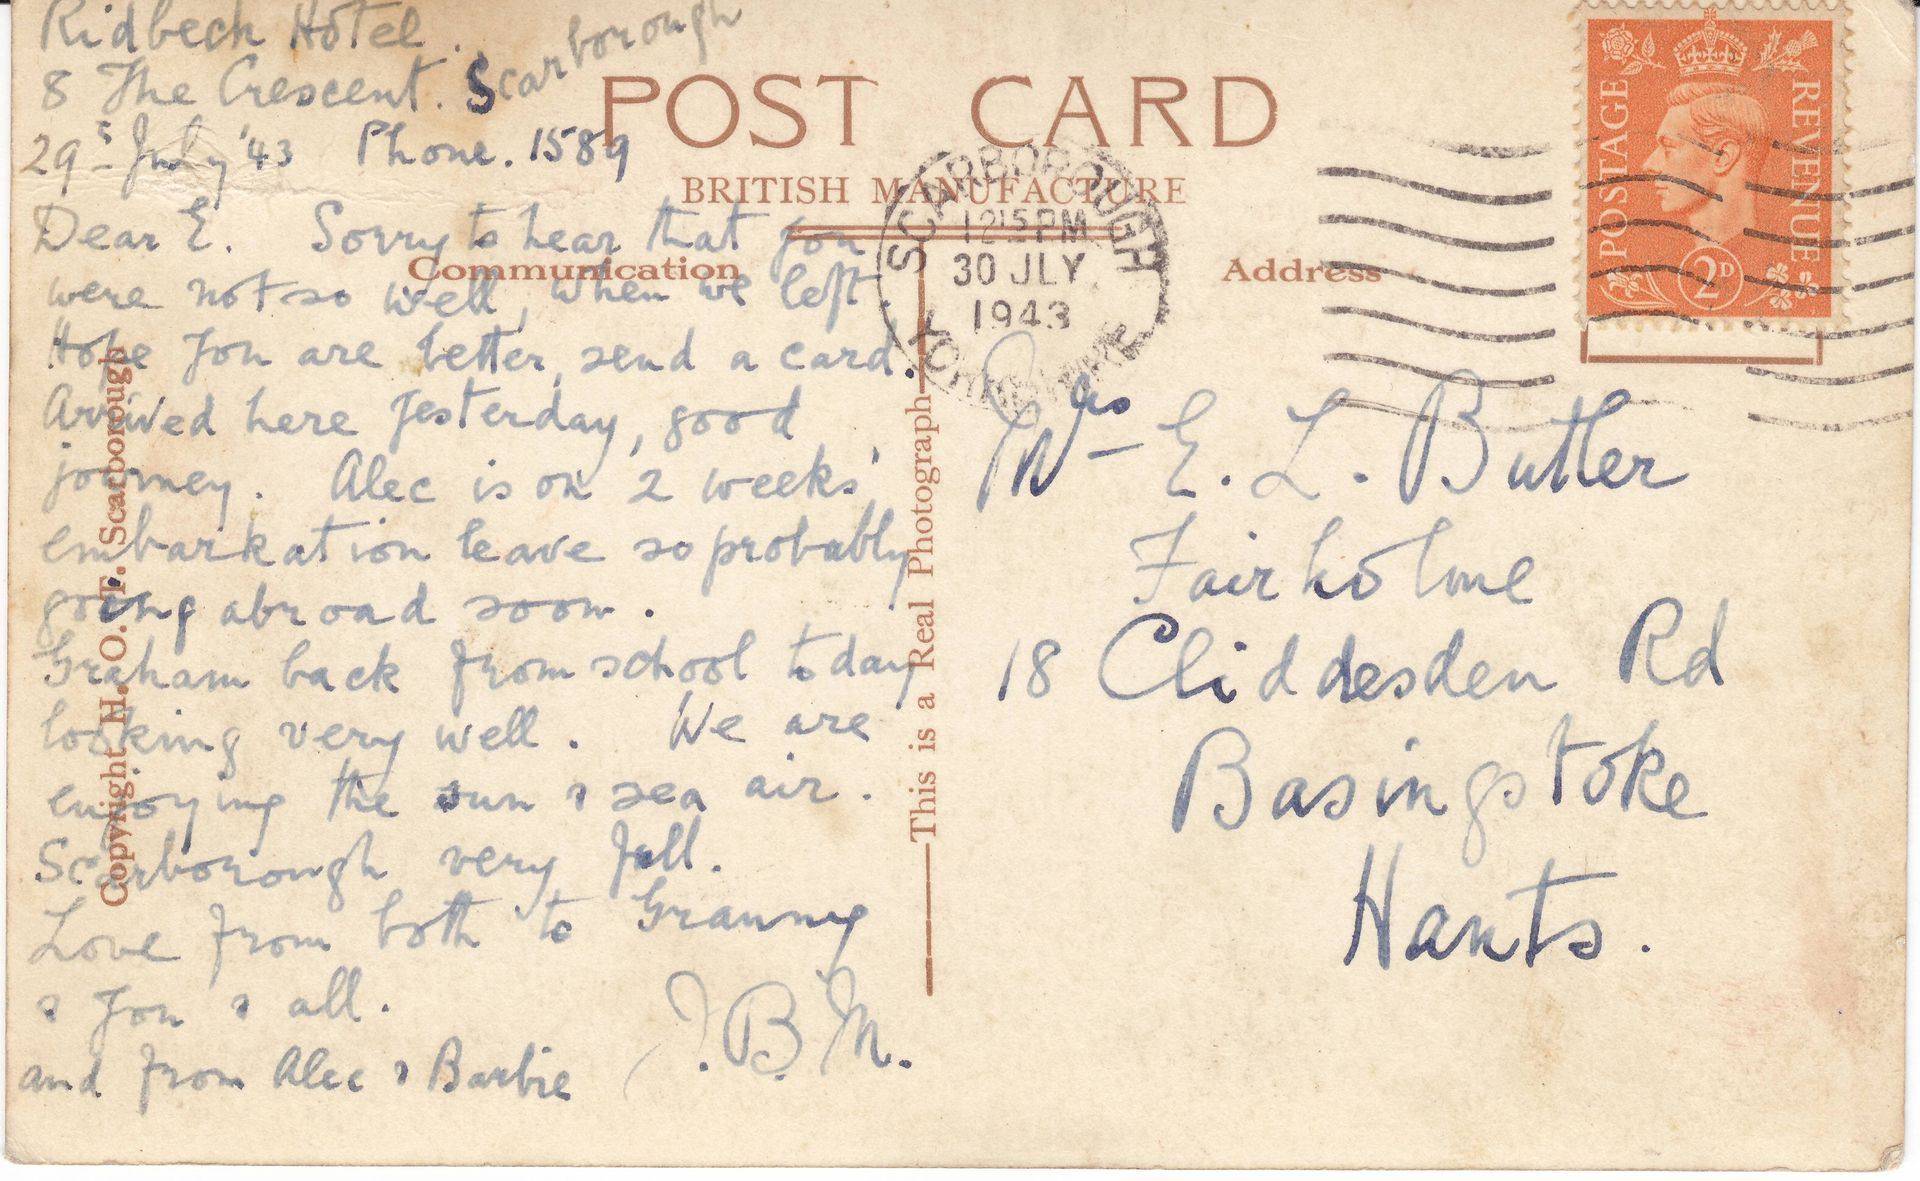 Ridbeck Hotel.
8 The Crescent. Scarborough
29th July '43 Phone. 1589
Dear E. Sorry to hear that you
were not so well, when we left.
Hope you are better, send a card.
Arrived here yesterday, good
journey. Alec is on '2 weeks'
embarkation leave so probably
going abroad soon.
Graham back from school today
looking very well. We are
enjoying the sun & sea air.
Scarborough very full.
Love from both to Granny
& you & all.
J.B.M.
and from Alec & Barbie
POST CARD
BRITISH MANUFACTURE
Communication
Address
Copyright H. O. T. Scarborough
This is a Real Photograph
SCARBOROUGH
1215 PM
30 JLY
1943
YORKSHIRE
POSTAGE
REVENUE
2D
Mrs E. L. Butler
Fairholme
18 Cliddesden Rd
Basingstoke
Hants.